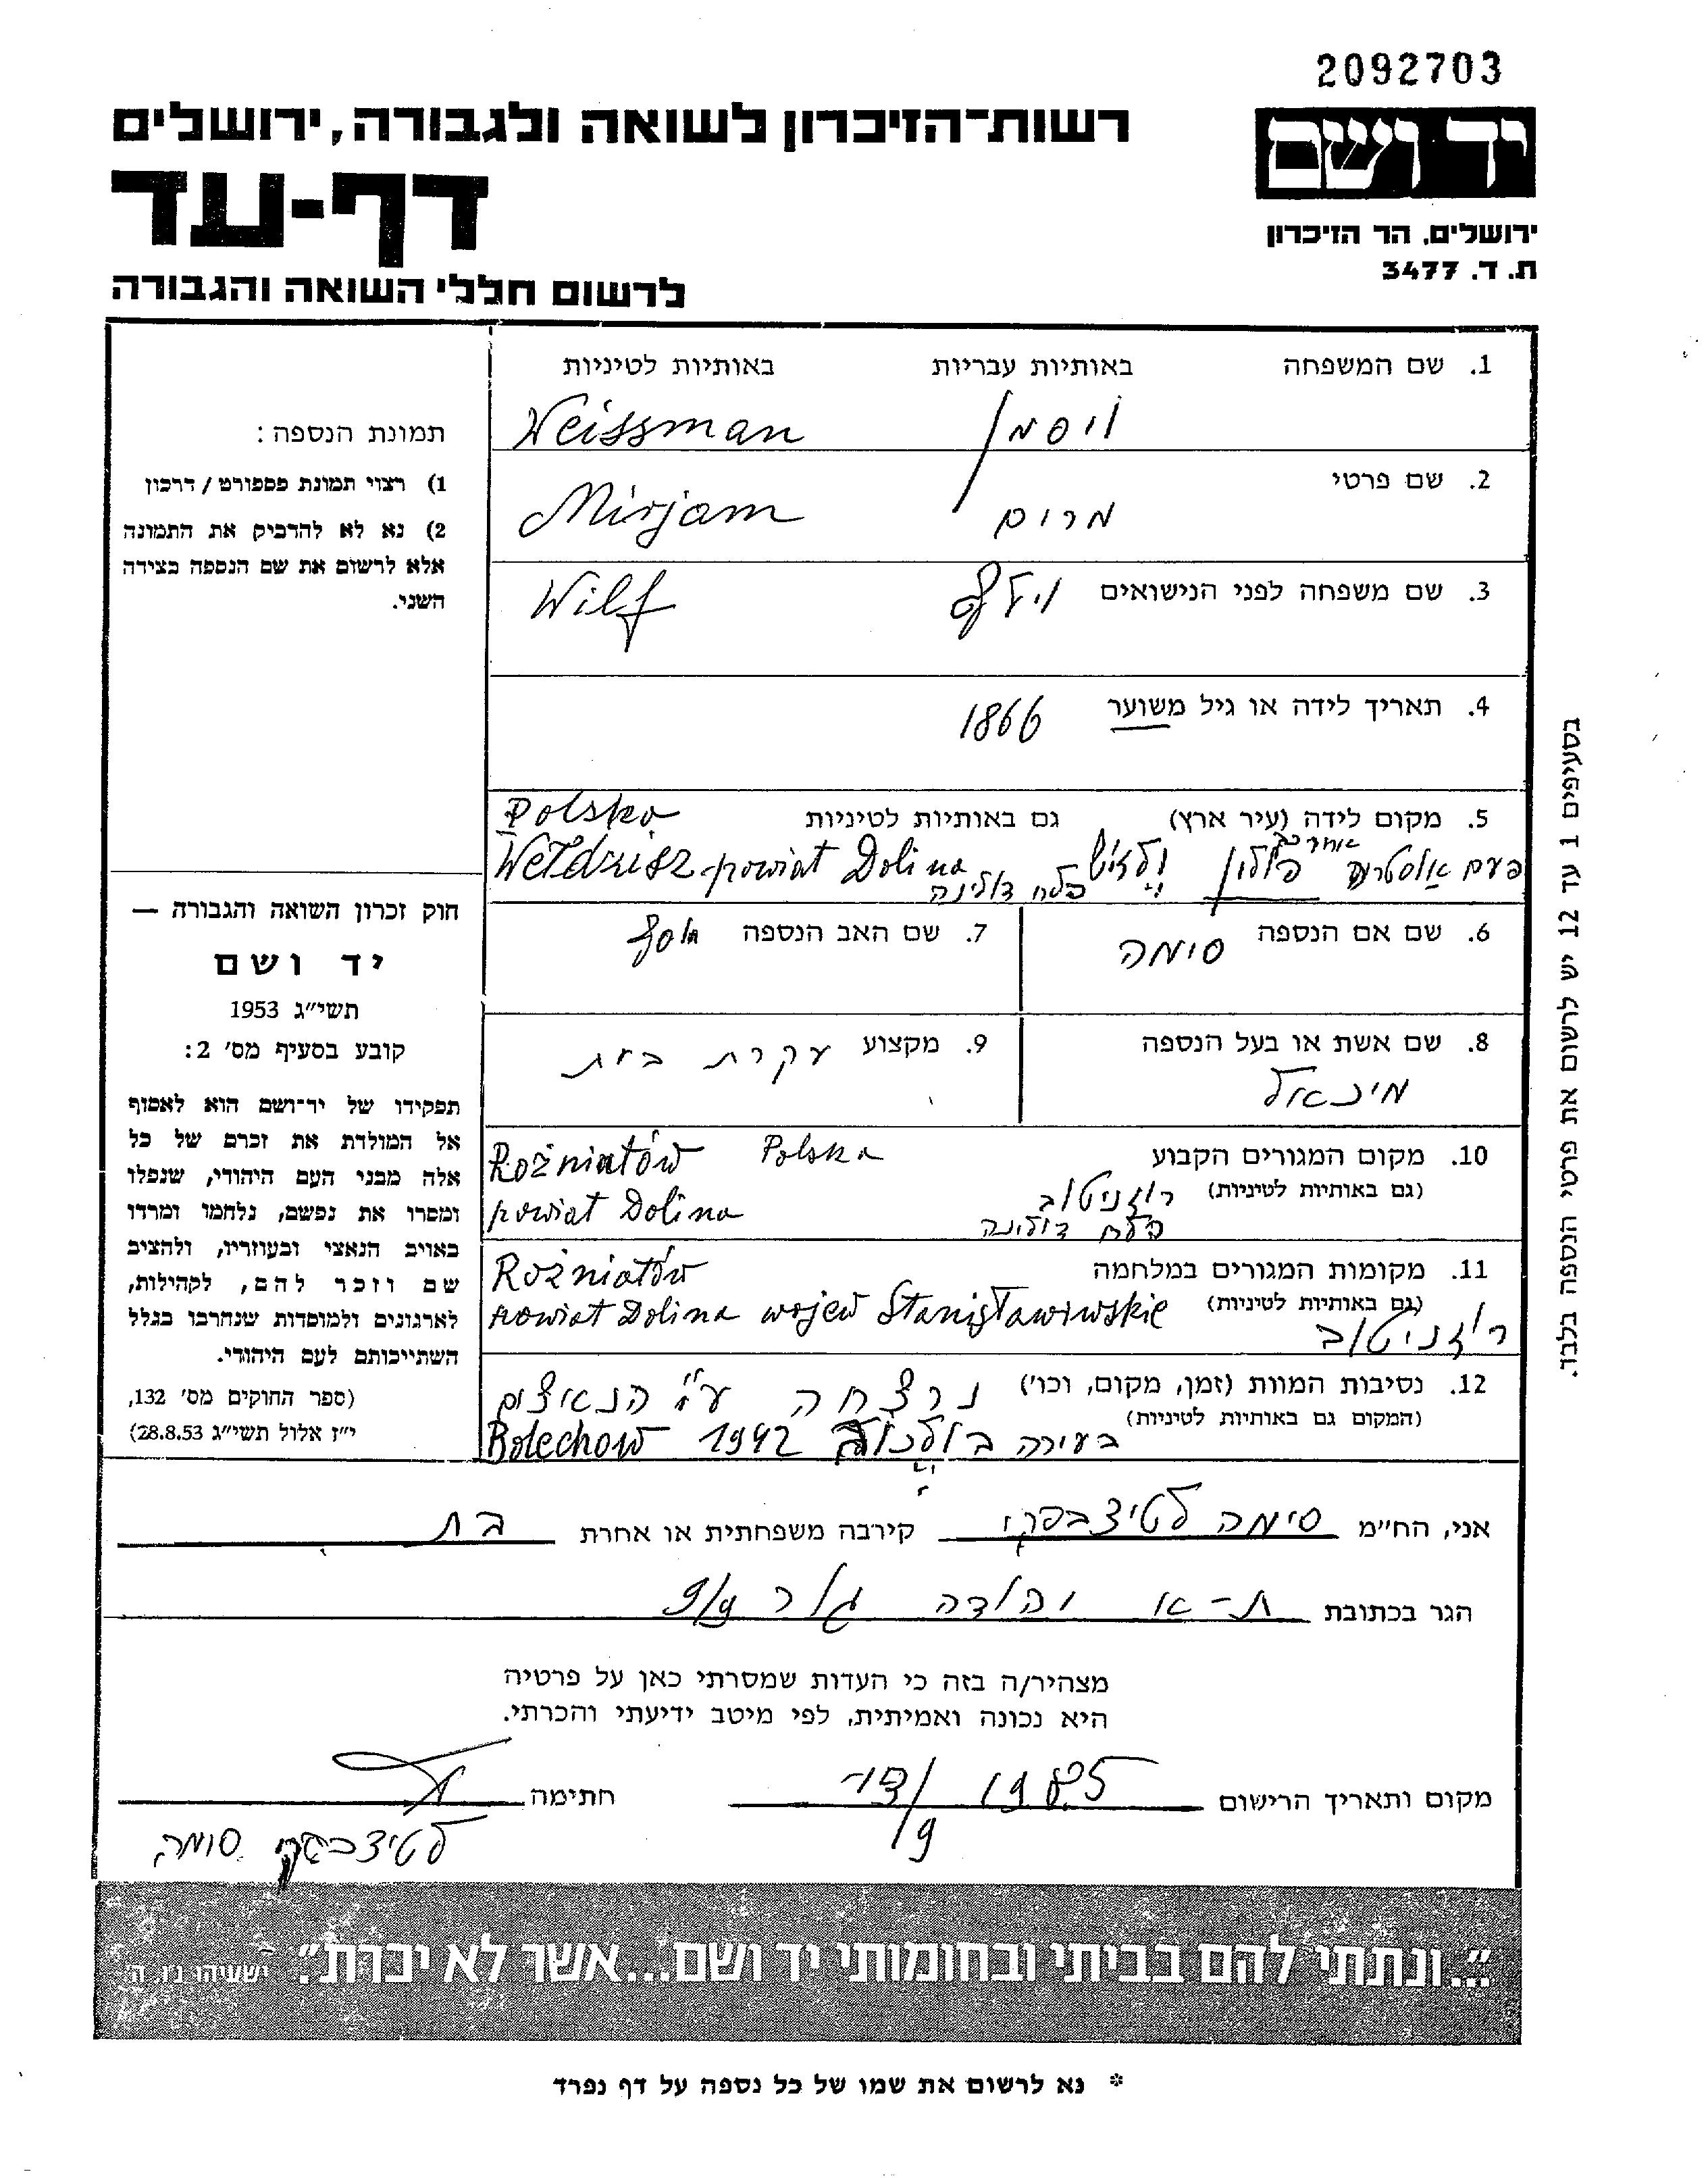 2092703
רשות-הזיכרון לשואה ולגבורה, ירושלים
יד ושם
דף-עד
ירושלים, הר הזיכרון
ת. ד. 3477
לרשום חללי השואה והגבורה
1. שם המשפחה באותיות עבריות באותיות לטיניות
ויסמן Weissman
2. שם פרטי
מרים Mirjam
3. שם משפחה לפני הנישואים וילף Wilf
4. תאריך לידה או גיל משוער 1866
5. מקום לידה (עיר ארץ) גם באותיות לטיניות Polska
פעם אוסטריה פולין Wełdzisz powiat Dolina
פלח דולינה
6. שם אם הנספה סימה
7. שם האב הנספה יוסף
8. שם אשת או בעל הנספה
מיכאל
9. מקצוע עקרת בית
10. מקום המגורים הקבוע Rożniatów Polska
(גם באותיות לטיניות) רוזניטוב powiat Dolina
פלח דולינה
11. מקומות המגורים במלחמה Rożniatów
(גם באותיות לטיניות) powiat Dolina wojew Stanisławowskie
רוזניטוב
12. נסיבות המוות (זמן, מקום, וכו') נרצחה ע"י הנאצים
(המקום גם באותיות לטיניות)
בעירה בולכוב 1942 Bolechow
תמונת הנספה:
1) רצוי תמונת פספורט / דרכון
2) נא לא להדביק את התמונה
אלא לרשום את שם הנספה בצידה
השני.
חוק זכרון השואה והגבורה —
יד ושם
תשי"ג 1953
קובע בסעיף מס' 2:
תפקידו של יד-ושם הוא לאסוף
אל המולדת את זכרם של כל
אלה מבני העם היהודי, שנפלו
ומסרו את נפשם, נלחמו ומרדו
באויב הנאצי ובעוזריו, ולהציב
שם וזכר להם, לקהילות,
לארגונים ולמוסדות שנחרבו בגלל
השתייכותם לעם היהודי.
(ספר החוקים מס' 132,
י"ז אלול תשי"ג 28.8.53)
בסעיפים 1 עד 12 יש לרשום את פרטי הנספה בלבד.
אני, הח"מ סימה קירבה משפחתית או אחרת בת
הגר בכתובת ת-א
מצהיר/ה בזה כי העדות שמסרתי כאן על פרטיה
היא נכונה ואמיתית, לפי מיטב ידיעתי והכרתי.
מקום ותאריך הרישום 1985 חתימה
סימה
"...ונתתי להם בביתי ובחומותי יד ושם...אשר לא יכרת". ישעיהו נ"ו, ה'
* נא לרשום את שמו של כל נספה על דף נפרד